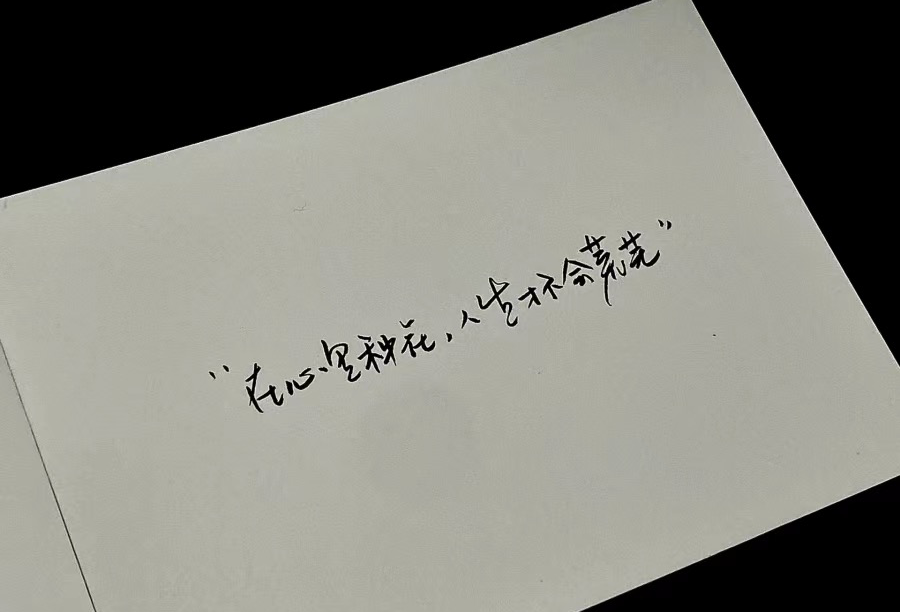 “在心里种花，人生才不会荒芜”